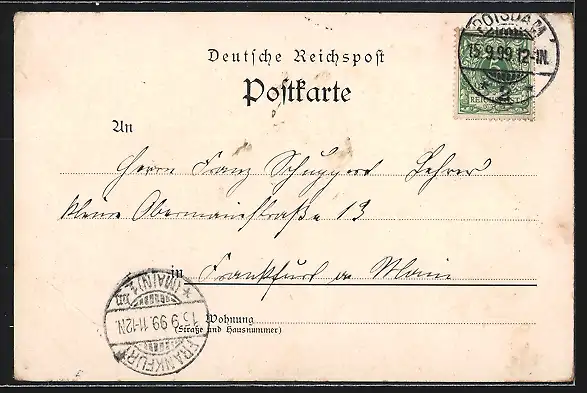 POTSDAM
15.9.99.12-1N.
* 2 *
Deutsche Reichspost
Postkarte
5
An
Herrn Franz Schuppert Lehrer
kleine Obermainstraße 13
in Frankfurt a Main
Wohnung
(Straße und Hausnummer)
FRANKFURT
15.9.99.11-12N.
* (MAIN) 1